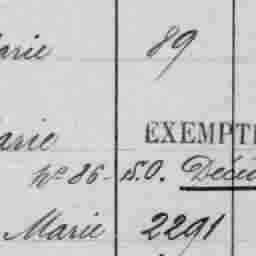 arie 89
arie EXEMPT
No 86-15.0. Décé
Marie 2291